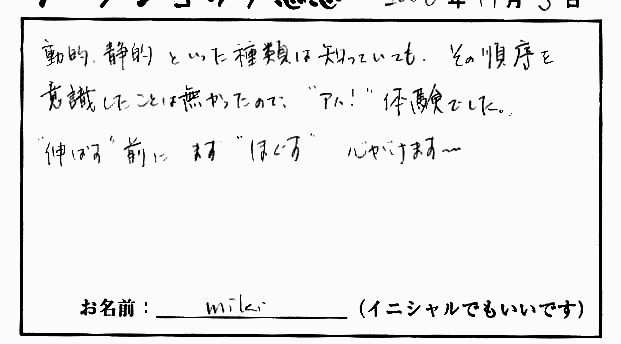 動的、静的 といった種類は知っていても、その順序を
意識したことは無かったので、"アハ!" 体験でした。
"伸ばす" 前に まず "ほぐす" 心がけます〜
お名前：miki（イニシャルでもいいです）